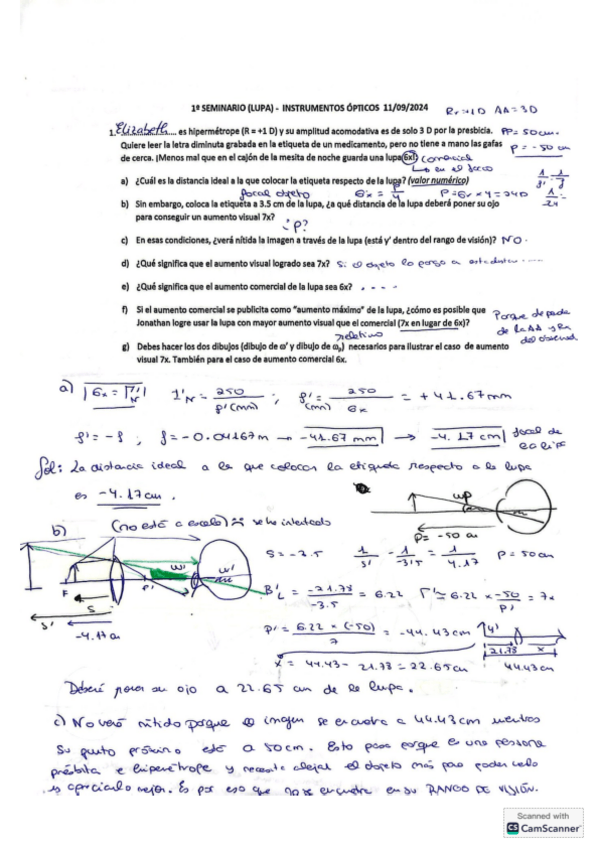 1º SEMINARIO (LUPA) - INSTRUMENTOS ÓPTICOS 11/09/2024 Rx=+1D AA=3D
1. Elizabeth.... es hipermétrope (R = +1 D) y su amplitud acomodativa es de solo 3 D por la presbicia. PP=50cm.
Quiere leer la letra diminuta grabada en la etiqueta de un medicamento, pero no tiene a mano las gafas P=-50cm
de cerca. ¡Menos mal que en el cajón de la mesita de noche guarda una lupa 6x! comercial
↳ en el foco
a) ¿Cuál es la distancia ideal a la que colocar la etiqueta respecto de la lupa? (valor numérico)
focal objeto
b) Sin embargo, coloca la etiqueta a 3.5 cm de la lupa, ¿a qué distancia de la lupa deberá poner su ojo
para conseguir un aumento visual 7x?
p?
c) En esas condiciones, ¿verá nítida la imagen a través de la lupa (está y' dentro del rango de visión)? NO.
d) ¿Qué significa que el aumento visual logrado sea 7x? Si el objeto lo pongo a esta
e) ¿Qué significa que el aumento comercial de la lupa sea 6x?
f) Si el aumento comercial se publicita como "aumento máximo" de la lupa, ¿cómo es posible que
Jonathan logre usar la lupa con mayor aumento visual que el comercial (7x en lugar de 6x)?
Porque depende
de la AA y Rx
del observad.
relativo
g) Debes hacer los dos dibujos (dibujo de ω' y dibujo de ωp) necesarios para ilustrar el caso de aumento
visual 7x. También para el caso de aumento comercial 6x.
a) |6x = Γ'N| Γ'N = 250 / f'(mm) ; f'(mm) = 250 / 6x = +41.67mm
f'=-f ; f=-0.04167m → -41.67 mm → -4.17 cm focal de
Sol: La distancia ideal a la que colocar la etiqueta respecto a la lupa
es -4.17cm.
ωp
P=-50 cm
b) (no está a escala) se ha intentado
ω' ω'
F F'
S
S'
-4.17cm
S=-3.5 1/s' - 1/-3.5 = 1/4.17 P=50cm
B'L = -21.78/-3.5 = 6.22 Γ'=6.22 x -50/p' = 7x
P' = 6.22 x (-50) / 7 = -44.43cm
y'
21.78 x
44.43cm
x = 44.43 - 21.78 = 22.65cm
Deberá poner su ojo a 22.65 cm de la lupa.
c) No verá nítido porque la imagen se encuentra a 44.43cm mientras
su punto próximo está a 50cm. Esto pasa porque es una persona
présbita e hipermétrope y necesita alejar el objeto más para poder verlo
apreciarlo mejor. Es por eso que no se encuentra en su RANGO DE VISIÓN.
Scanned with
CS CamScanner